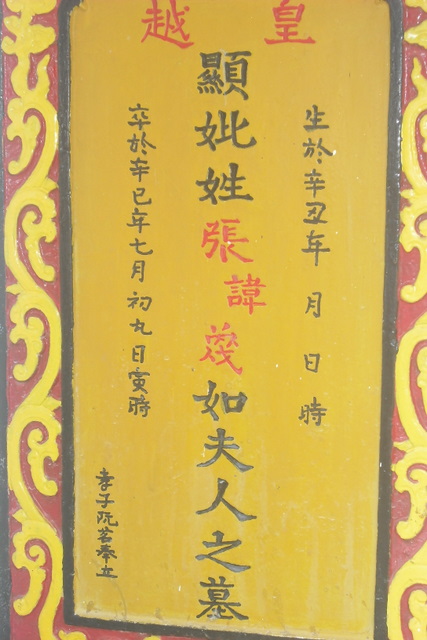 皇越
生於辛丑年 月 日 時
顯妣姓張諱 如夫人之墓
卒於辛巳年七月初九日寅時
孝子阮茗奉立